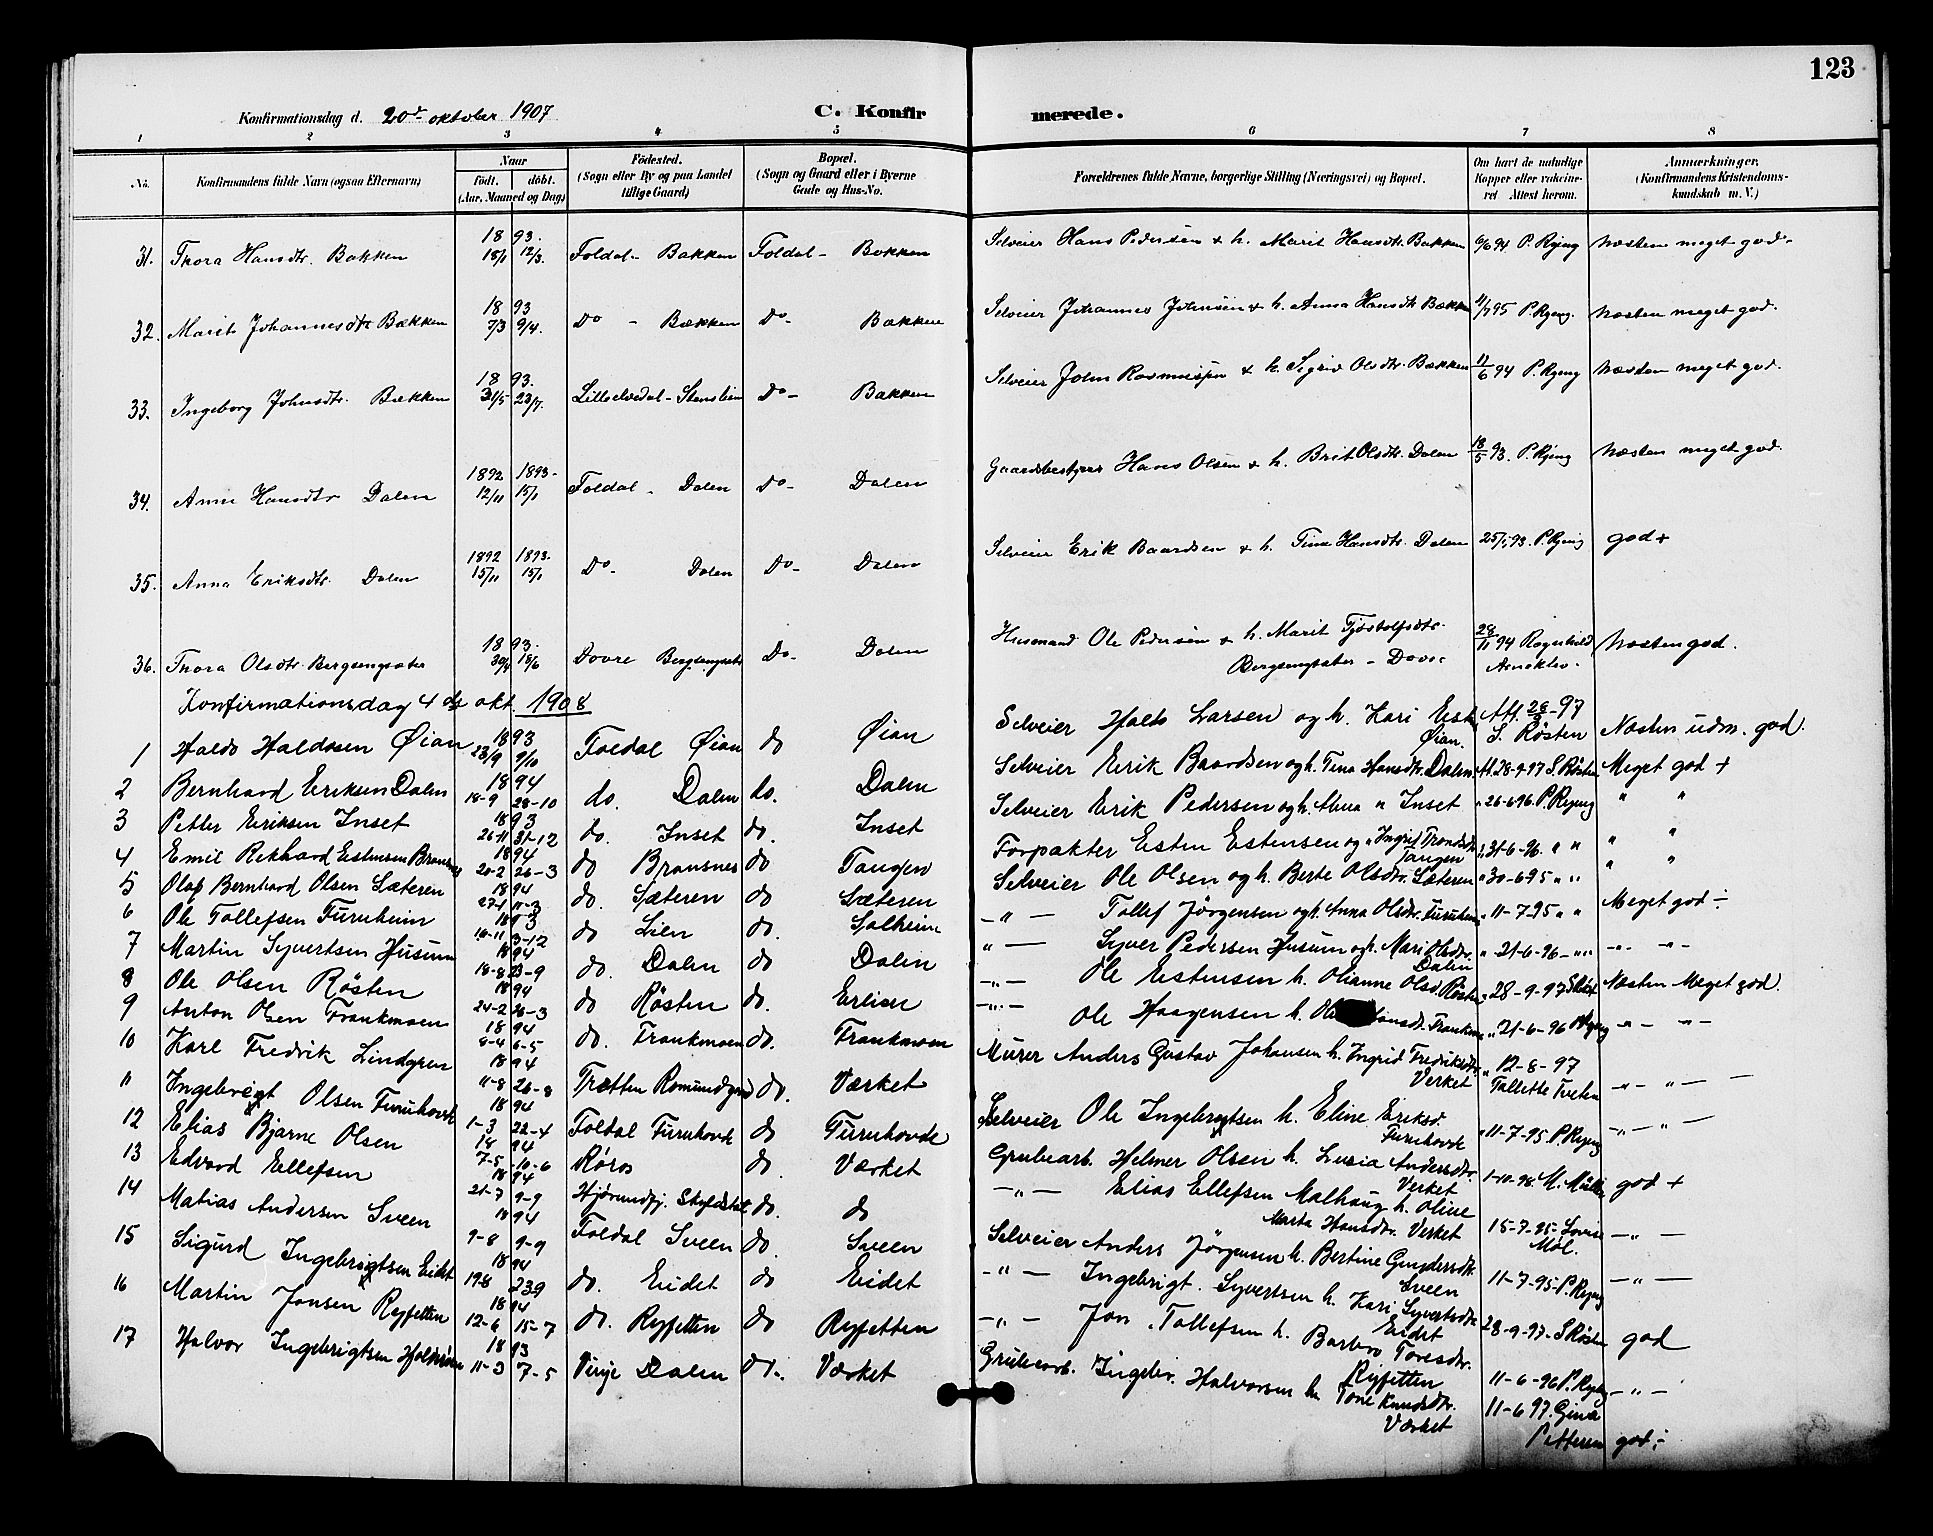 123
Konfirmationsdag d. 20de oktober 1907 C. Konfirmerede.
1 2 3 4 5 6 7 8
No. Konfirmandens fulde Navn (ogsaa Efternavn) Naar födt. döbt. (Aar, Maaned og Dag) Födested. (Sogn eller By og paa Landet tillige Gaard) Bopæl. (Sogn og Gaard eller i Byerne Gade og Hus-No. Forældrenes fulde Navne, borgerlige Stilling (Næringsvei) og Bopæl. Om havt de naturlige Kopper eller vaccineret Attest herom. Anmærkninger. (Konfirmandens Kristendomskundskab m. V.)
31. Thora Hansdtr. Bakken 1893. 18/1 12/3. Foldal - Bakken Foldal - Bakken Selveier Hans Pedersen & h. Marit Hansdtr. Bakken 6/6 94 P. Ryeng Næsten meget god.
32. Marit Johannesdtr Bækken 1893 7/3 9/4. Do - Bækken Do - Bækken Selveier Johannes Johnsen & h. Anna Hansdtr Bækken 11/7 95 P. Ryeng. Næsten meget god.
33. Ingeborg Johnsdtr. Bækken 1893. 31/5 23/7. Lilleelvedal - Stenslien Do - Bækken Selveier John Rasmussen & h. Sigrid Olsdtr. Bækken 11/6 94 P. Ryeng Næsten meget god.
34. Anne Hansdtr Dalen 1892 12/11 1893 - 15/1 Foldal - Dalen Do - Dalen Gaardsbestyrer Hans Olsen & h. Brit Olsdtr. Dalen 18/5 93. P. Ryeng Næsten meget god.
35. Anna Eriksdtr. Dalen 1892 15/11 1893. 15/1 Do - Dalen Do - Dalen Selveier Erik Baardsen & h. Tina Hansdtr. Dalen 25/5 93. P. Ryeng god +
36. Thora Olsdtr. Bergsengsæter 1893. 30/4 18/6 Dovre Bergsengsæter Do - Dalen Husmand Ole Pedersen & h. Marit Tjøstolfsdtr. Bergsengsæter - Dovre 28/11 94 Ragnhild Næsten god.
Konfirmationsdag 4de okt. 1908
1 Haldo Haldosen Øian 1893 23/9 9/10 Foldal Øian do Øian Selveier Haldo Larsen og h. Kari Øian. Att. 28/9-97 S. Røsten Næsten udm. god.
2 Bernhard Eriksen Dalen 1894 18-9 28-10 do. Dalen do. Dalen Selveier Erik Baardsen og h. Tina Hansdtr. Dalen At. 28-9-97 S. Røsten Meget god +
3 Petter Eriksen Inset 1893 26-11 31-12 do. Inset do. Inset Selveier Erik Pedersen og h. " Inset " 26-6 96. P. Ryeng " "
4 Emil Rikhard Estensen Bransnes 1894 20-2 26-3 do Bransnes do Tangen Forpakter Esten Estensen og " Ingrid Trondsdtr Tangen " 31-6-96. " " " "
5 Olaf Bernhard Olsen Sæteren 1894 27-1 11-3 do. Sæteren do Sæteren Selveier Ole Olsen og h. Berte Olsdtr. Sæteren " 30-6 95 " " " "
6 Ole Tollefsen Furuheim 1893 10-11 3-12 do Lien do. Solheim - " - Tollef Jørgensen og h. Anna Olsdtr. Furuheim " 11-7-95 " " Meget god ÷
7 Martin Syvertsen Husum 1894 18-8 23-9 do. Dalen do Dalen " - Syver Pedersen Husum og h. Mari Olsdtr. Dalen " 21-6-96 - " " - " - - " -
8 Ole Olsen Røsten 1894 24-2 26-3 do Røsten do. Erlien - " - Ole Estensen h. Olianne Olsd. Røsten " 28-9-97 Næsten Meget god.
9 Anton Olsen Frankmoen 1894 8-4 6-5 do. Frankmoen do. Frankmoen - " - Ole Haagensen h. Hansdtr. Frankmoen " 21-6-96 P. Ryeng - " - - " -
10 Karl Fredrik Lindgren 1894 11-8 26-8 Tretten Romundgaard do. Værket Murer Anders Gustav Johansen h. Ingrid Fredriksdtr. Verket " 12-8-97 Tallette Tveten - " - " -
11 Ingebrigt Olsen Furuhovde 1894 1-3 22-4 Foldal Furuhovde do Furuhovde Selveier Ole Ingebrigtsen h. Eline Eriksd. Furuhovde " 11-7-95 P. Ryeng - " - " -
12 Elias Bjarne Olsen 1894 7-5 10-6 Røros do. Værket Grubearb. Helmer Olsen h. Lusia Andersdtr. Verket 1-10-98. M. Müller god +
13 Edvard Ellefsen 1894 21-7 9-9 Hjørundfj. do. do - " - Elias Ellefsen Malhaug h. Oline Marta Hansdtr. Verket 15-7-95 - Lovise Möl. - " -
14 Matias Andersen Sveen 1894 9-8 9-9 Foldal Sveen do. Sveen Selveier Anders Jörgensen h. Bertine Gundersdtr. Sveen 11-7-95-P. Ryeng - " -
15 Sigurd Ingebrigtsen Eidet 1894 19-8 23-9 do. Eidet do Eidet - " - Ingebrigt. Syvertsen h. Kari Syvertsdtr Eidet 28-9-97- S Røsten god
16 Martin Jonsen Ryfetten 1894 12-6 15-7 do. Ryfetten do Ryfetten - " - Jon Tollefsen h. Barbro Toresdtr. Ryfetten 11-6-96 P. Ryeng - " -
17 Halvor Ingebrigtsen 1893 11-3 7-5 Vinje Dalen do. Værket Grubearb. Ingebr. Halvorsen h. Tone Knudsdtr. Værket 11-6 97. Gina Pettersen god ÷